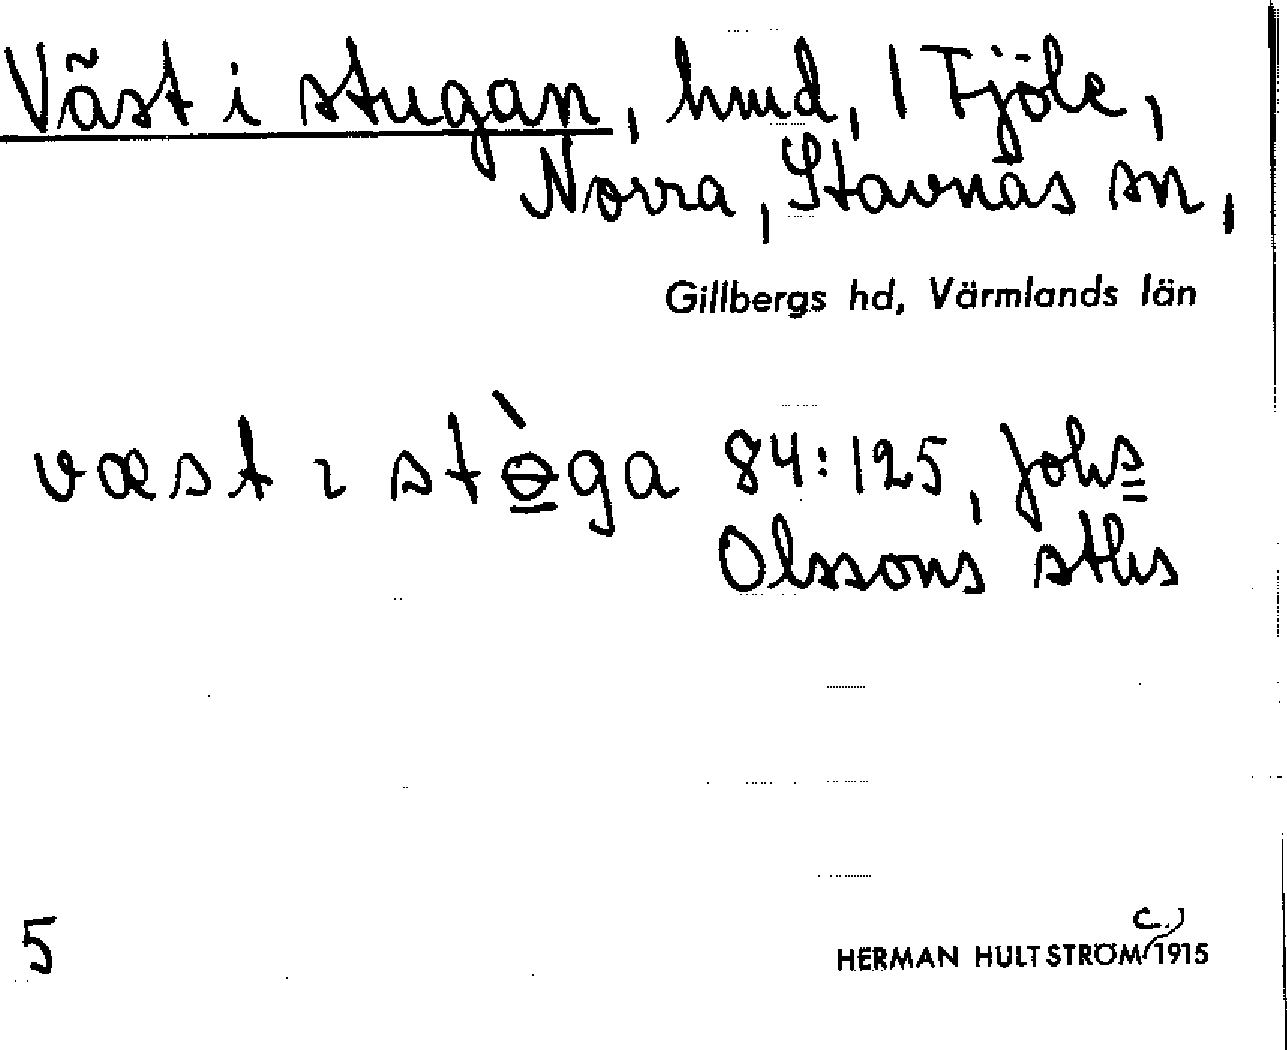 Väst i stugan, hmd, 1 Tjöle,
Norra, Stavnäs sn,
Gillbergs hd, Värmlands län
væst ɩ stɵ̀ga 84:125, Johs
Olssons sths
5
HERMAN HULTSTRÖM c.) 1915